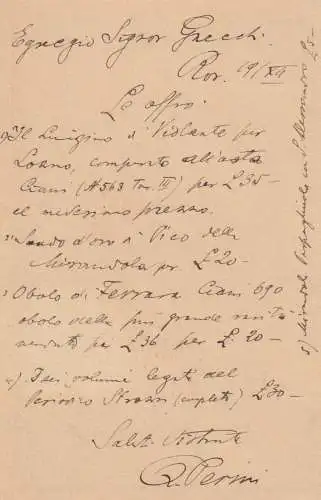 Egregio Signor Gnecchi
Rov. 19/XII
Le offro:
1) Il Luigino di Violante per
Loano, comperato all'asta
Ciani (N 568 Tav. III) per £35-
al medesimo prezzo.
2) Scudo d'oro di Pico della
Mirandola pr. £20-
3) Obolo di Ferrara Ciani 690
obolo della più grande rarità
venduto per £36 per £. 20-
4) I sei volumi legati del
Periodico Strozzi (completo) £30-
Salut. distinti
Q. Perini
5) Mirandola £5-